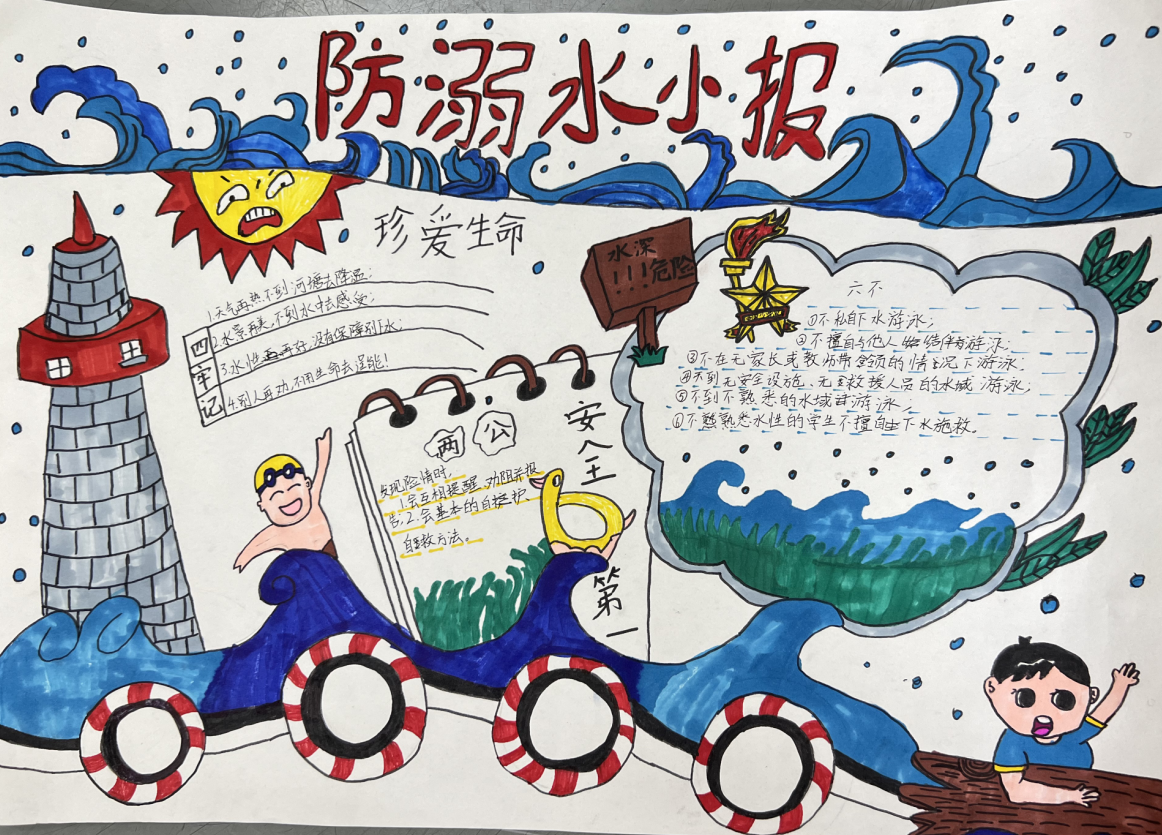 防溺水小报
珍爱生命
四牢记
1.天气再热,不到河塘去降温;
2.水景再美,不到水中去感受;
3.水性再好,没有保障别下水;
4.别人再劝,不用生命去逞能!
两公
发现险情时,
1.会互相提醒、劝阻并报
告;2.会基本的自护、
自救方法。
安全第一
水深
!!!危险
六不
①不私自下水游泳;
②不擅自与他人结伴游泳;
③不在无家长或教师带领的情况下游泳
④不到无安全设施、无救援人员的水域游泳;
⑤不到不熟悉的水域游泳;
①不熟悉水性的学生不擅自下水施救。